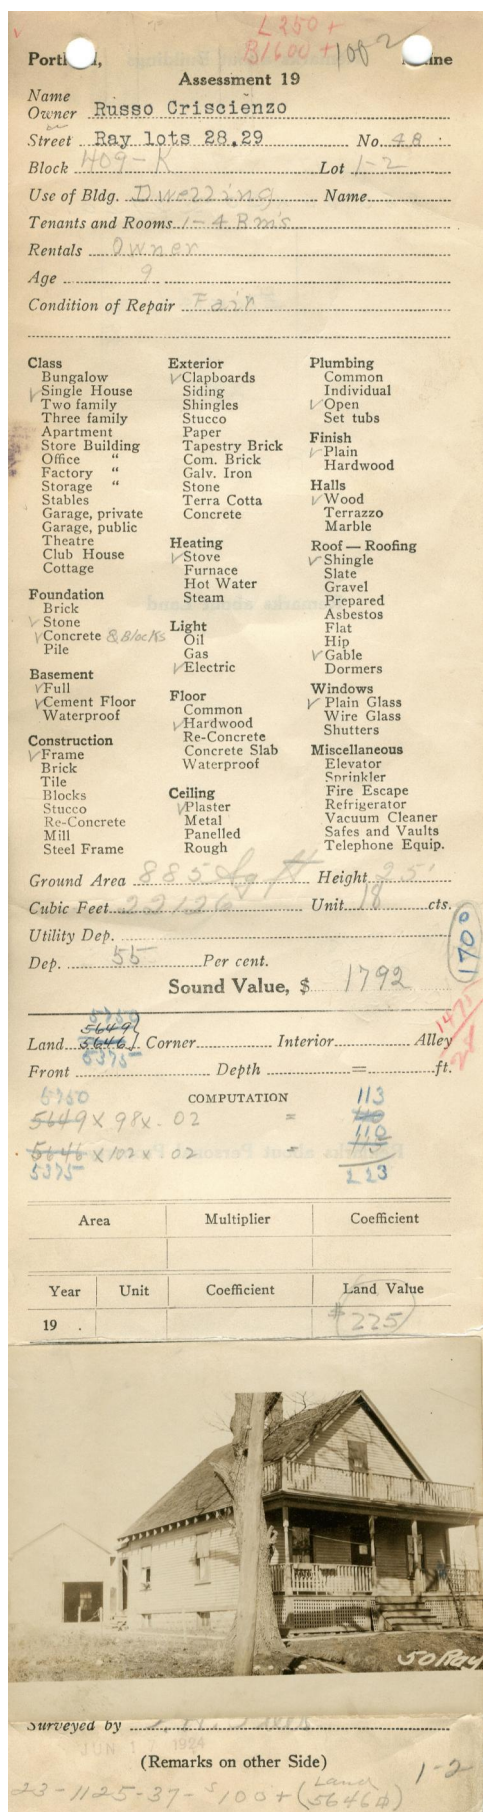 L 250 +
B 1600 + 100-2
Portl d, ine
Assessment 19
Name
or
Owner Russo Criscienzo
Street Ray lots 28,29 No. 48
Block 409-K Lot 1-2
Use of Bldg. Dwelling Name
Tenants and Rooms 1-4 Rm's
Rentals Owner
Age 9
Condition of Repair Fair
Class
Bungalow
✓ Single House
Two family
Three family
Apartment
Store Building
Office "
Factory "
Storage "
Stables
Garage, private
Garage, public
Theatre
Club House
Cottage
Foundation
Brick
✓ Stone
✓ Concrete & Blocks
Pile
Basement
✓ Full
✓ Cement Floor
Waterproof
Construction
✓ Frame
Brick
Tile
Blocks
Stucco
Re-Concrete
Mill
Steel Frame
Exterior
✓ Clapboards
Siding
Shingles
Stucco
Paper
Tapestry Brick
Com. Brick
Galv. Iron
Stone
Terra Cotta
Concrete
Heating
✓ Stove
Furnace
Hot Water
Steam
Light
Oil
Gas
✓ Electric
Floor
Common
✓ Hardwood
Re-Concrete
Concrete Slab
Waterproof
Ceiling
✓ Plaster
Metal
Panelled
Rough
Plumbing
Common
Individual
✓ Open
Set tubs
Finish
✓ Plain
Hardwood
Halls
✓ Wood
Terrazzo
Marble
Roof — Roofing
✓ Shingle
Slate
Gravel
Prepared
Asbestos
Flat
Hip
✓ Gable
Dormers
Windows
✓ Plain Glass
Wire Glass
Shutters
Miscellaneous
Elevator
Sprinkler
Fire Escape
Refrigerator
Vacuum Cleaner
Safes and Vaults
Telephone Equip.
Ground Area 885 Sq ft Height 25'
Cubic Feet 22126 Unit 18 cts.
Utility Dep.
Dep. 55 Per cent.
1700
Sound Value, $ 1792
1475
5750
5649
Land 5646 Corner Interior Alley
5375
Front Depth = ft.
COMPUTATION
5750 113
5649 x 98 x .02 =
110
5646 x 102 x 02 =
5375 223
Area Multiplier Coefficient
Year Unit Coefficient Land Value
19 . $225
50 Ray
Surveyed by
JUN 1 1924
(Remarks on other Side)
1-2
23-1125-37-$100+(Land